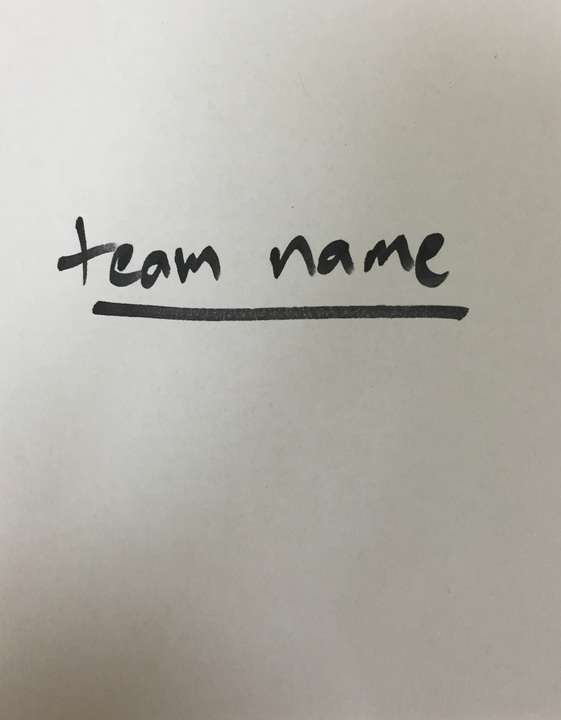 team name